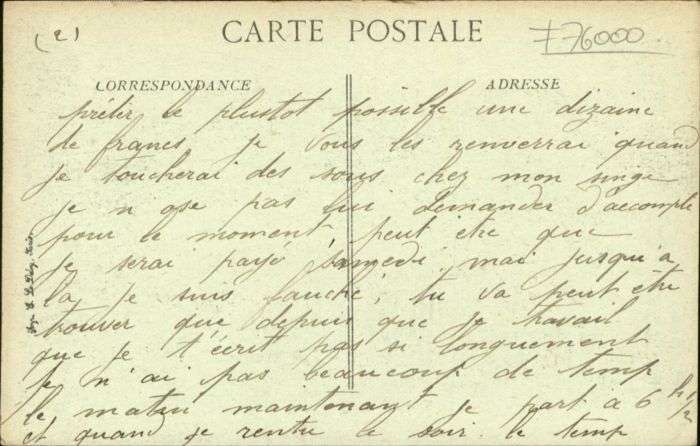 (2)
CARTE POSTALE
76000
CORRESPONDANCE
ADRESSE
prêter le plustot possible une dizaine
de francs je vous les renverrai quand
je toucherai des sous chez mon singe
je n ose pas lui demander d'acompte
pour le moment, peut etre que
je serai payé samedi mai jusqu'a
la je suis fauché, tu va peut être
trouver que depuis que je travail
que je t'écrit pas si longuement
je n'ai pas beaucoup de temp
le matin maintenant je part a 6 h 1/2
et quand je rentre le soir le temp